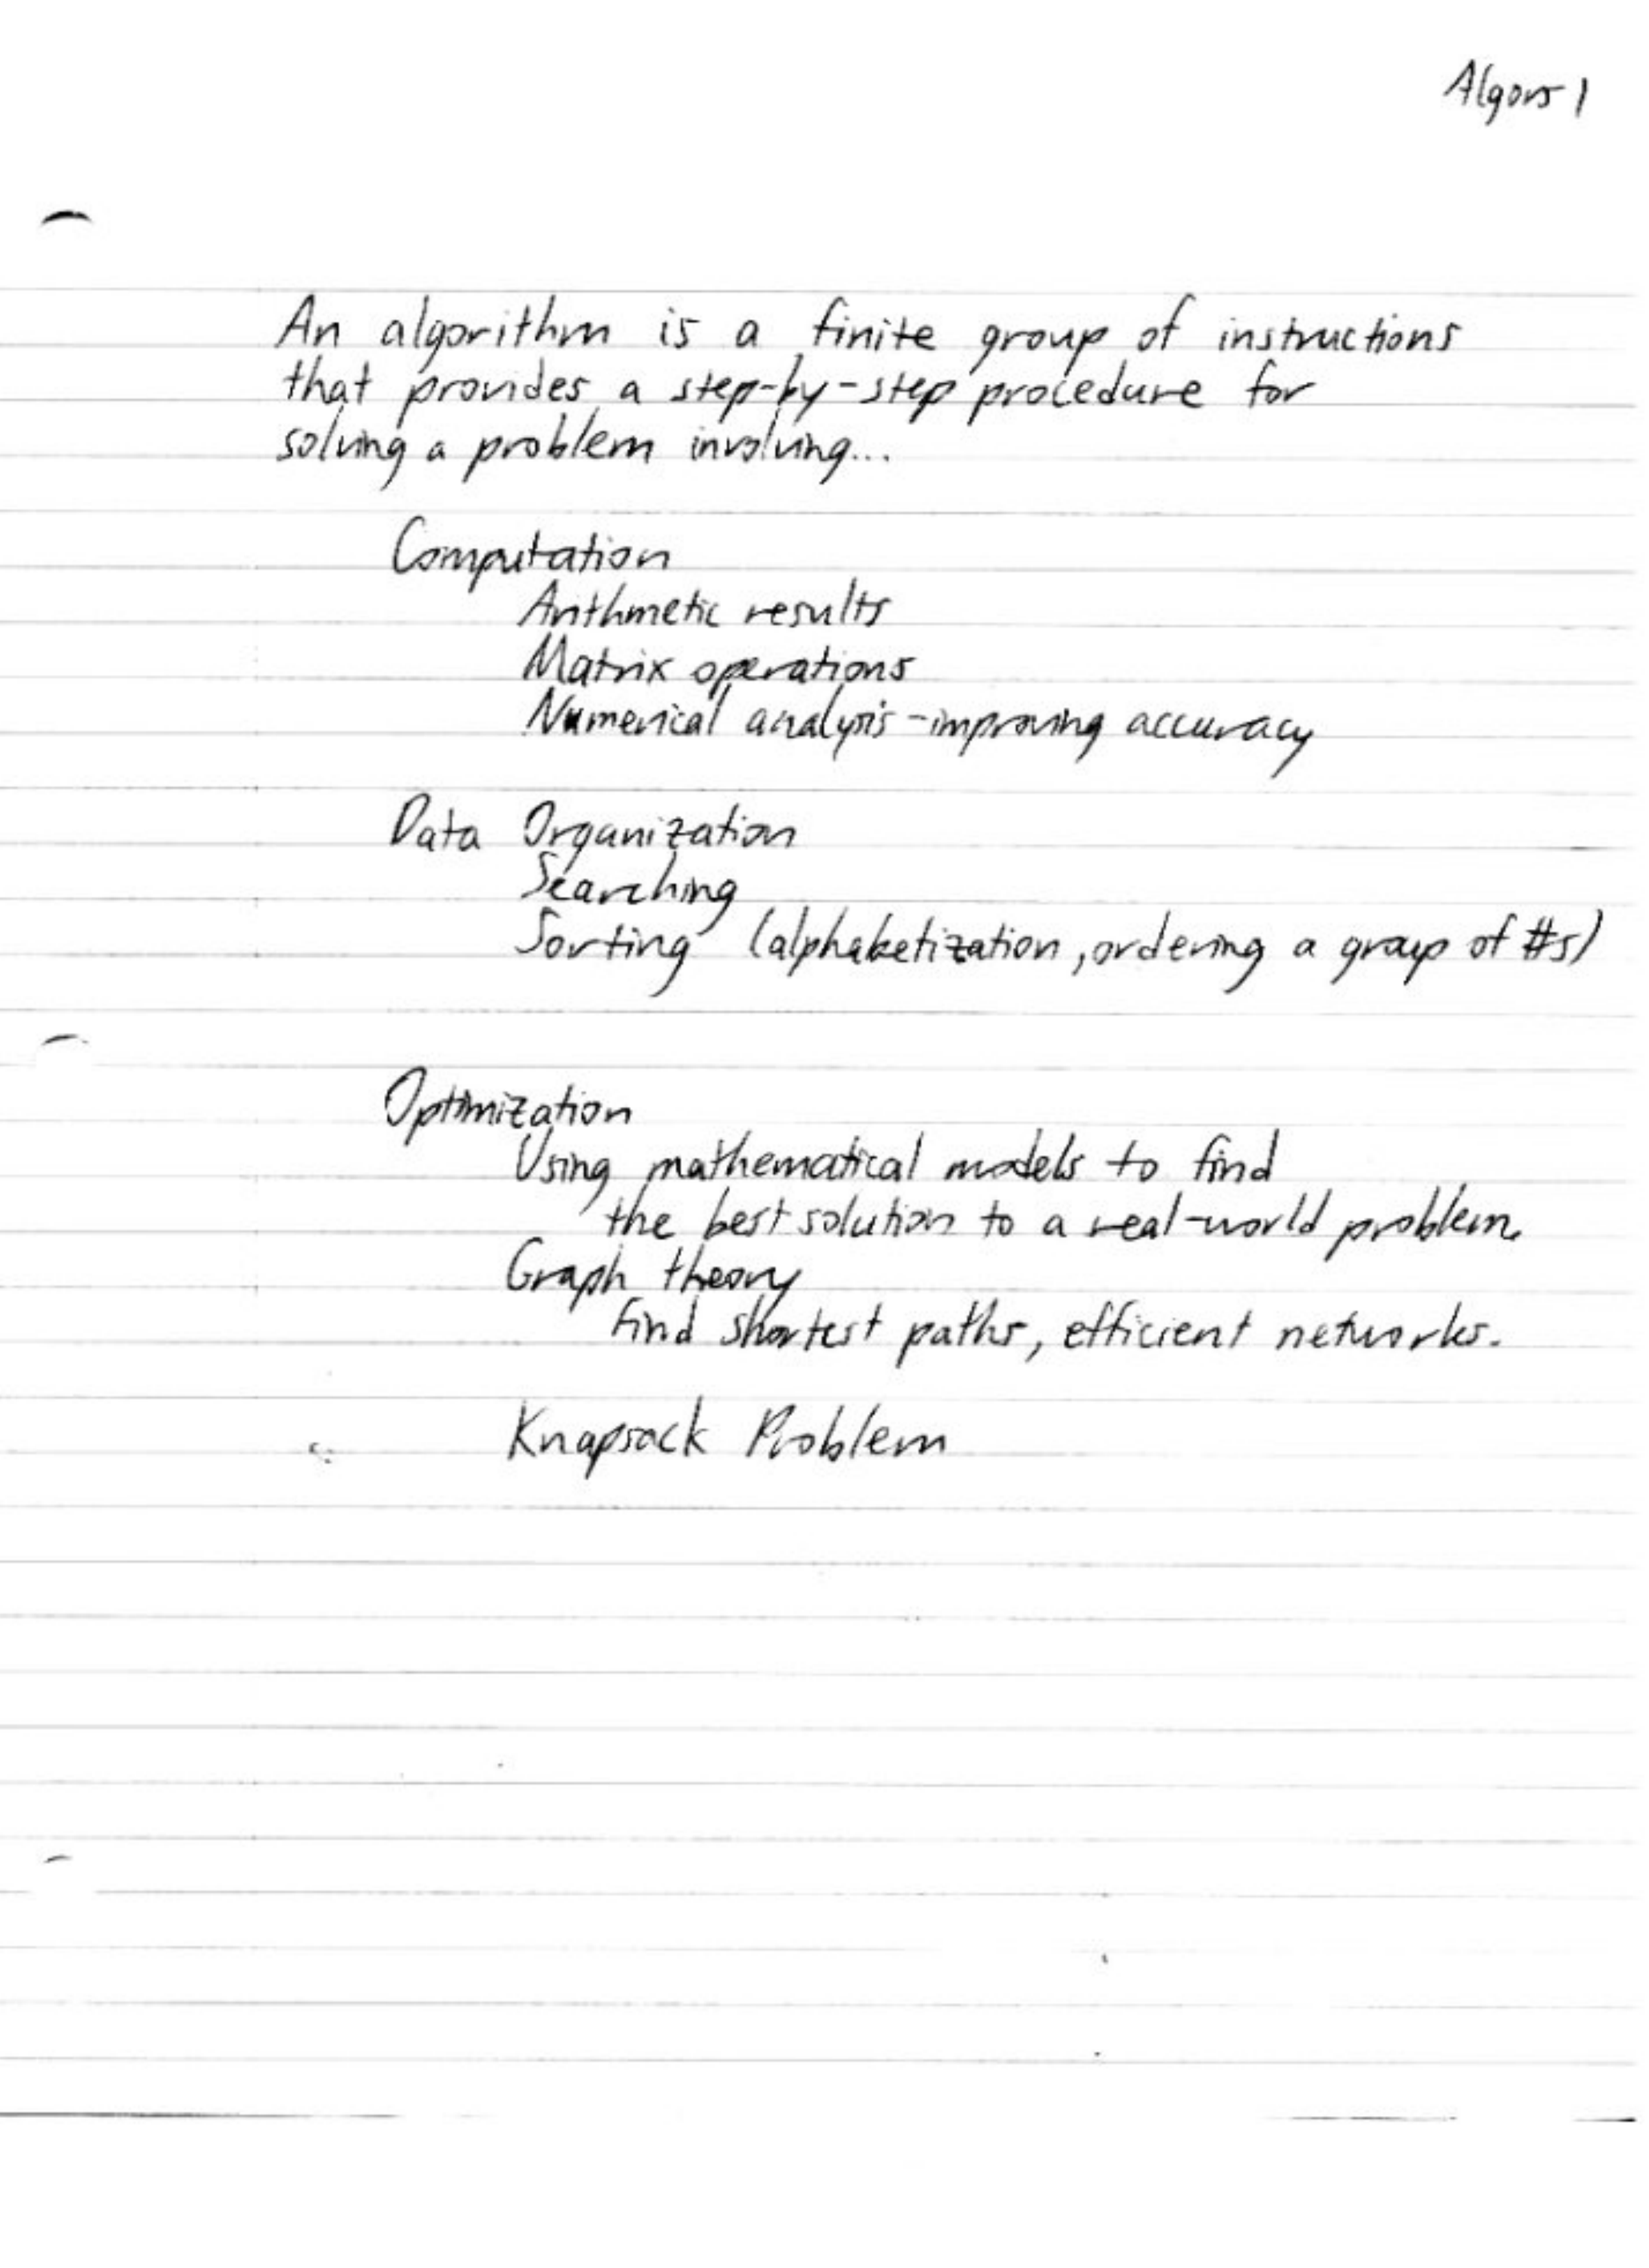 Algors 1
An algorithm is a finite group of instructions
that provides a step-by-step procedure for
solving a problem involving...
Computation
Arithmetic results
Matrix operations
Numerical analysis - improving accuracy
Data Organization
Searching
Sorting (alphabetization, ordering a group of #s)
Optimization
Using mathematical models to find
the best solution to a real-world problem.
Graph theory
find shortest paths, efficient networks.
Knapsack Problem